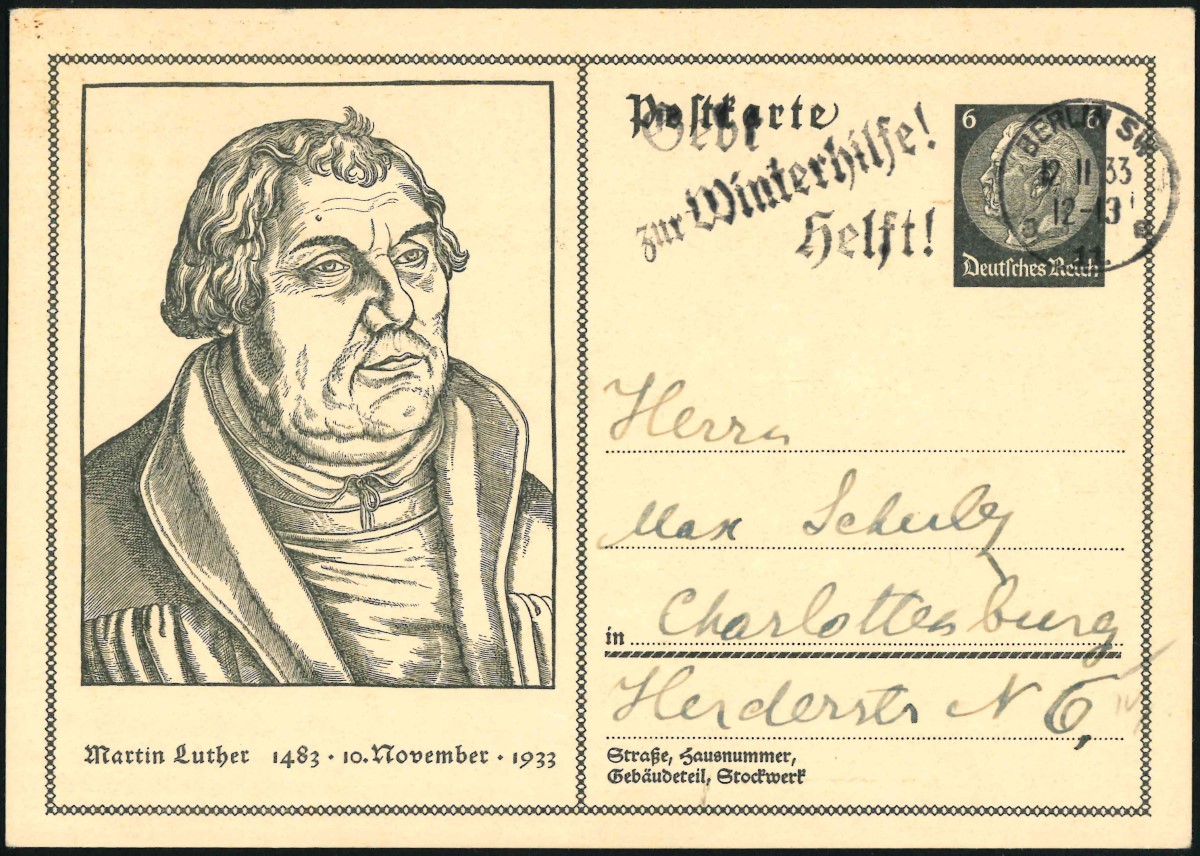 Martin Luther 1483 · 10. November · 1933
Postkarte
Gebt
zur Winterhilfe!
Helft!
6 6
Deutsches Reich
BERLIN SW
12 11 33
12-13
11
Herrn
Max Schulz
in Charlottenburg
Herderstr N 6,
Straße, Hausnummer,
Gebäudeteil, Stockwerk